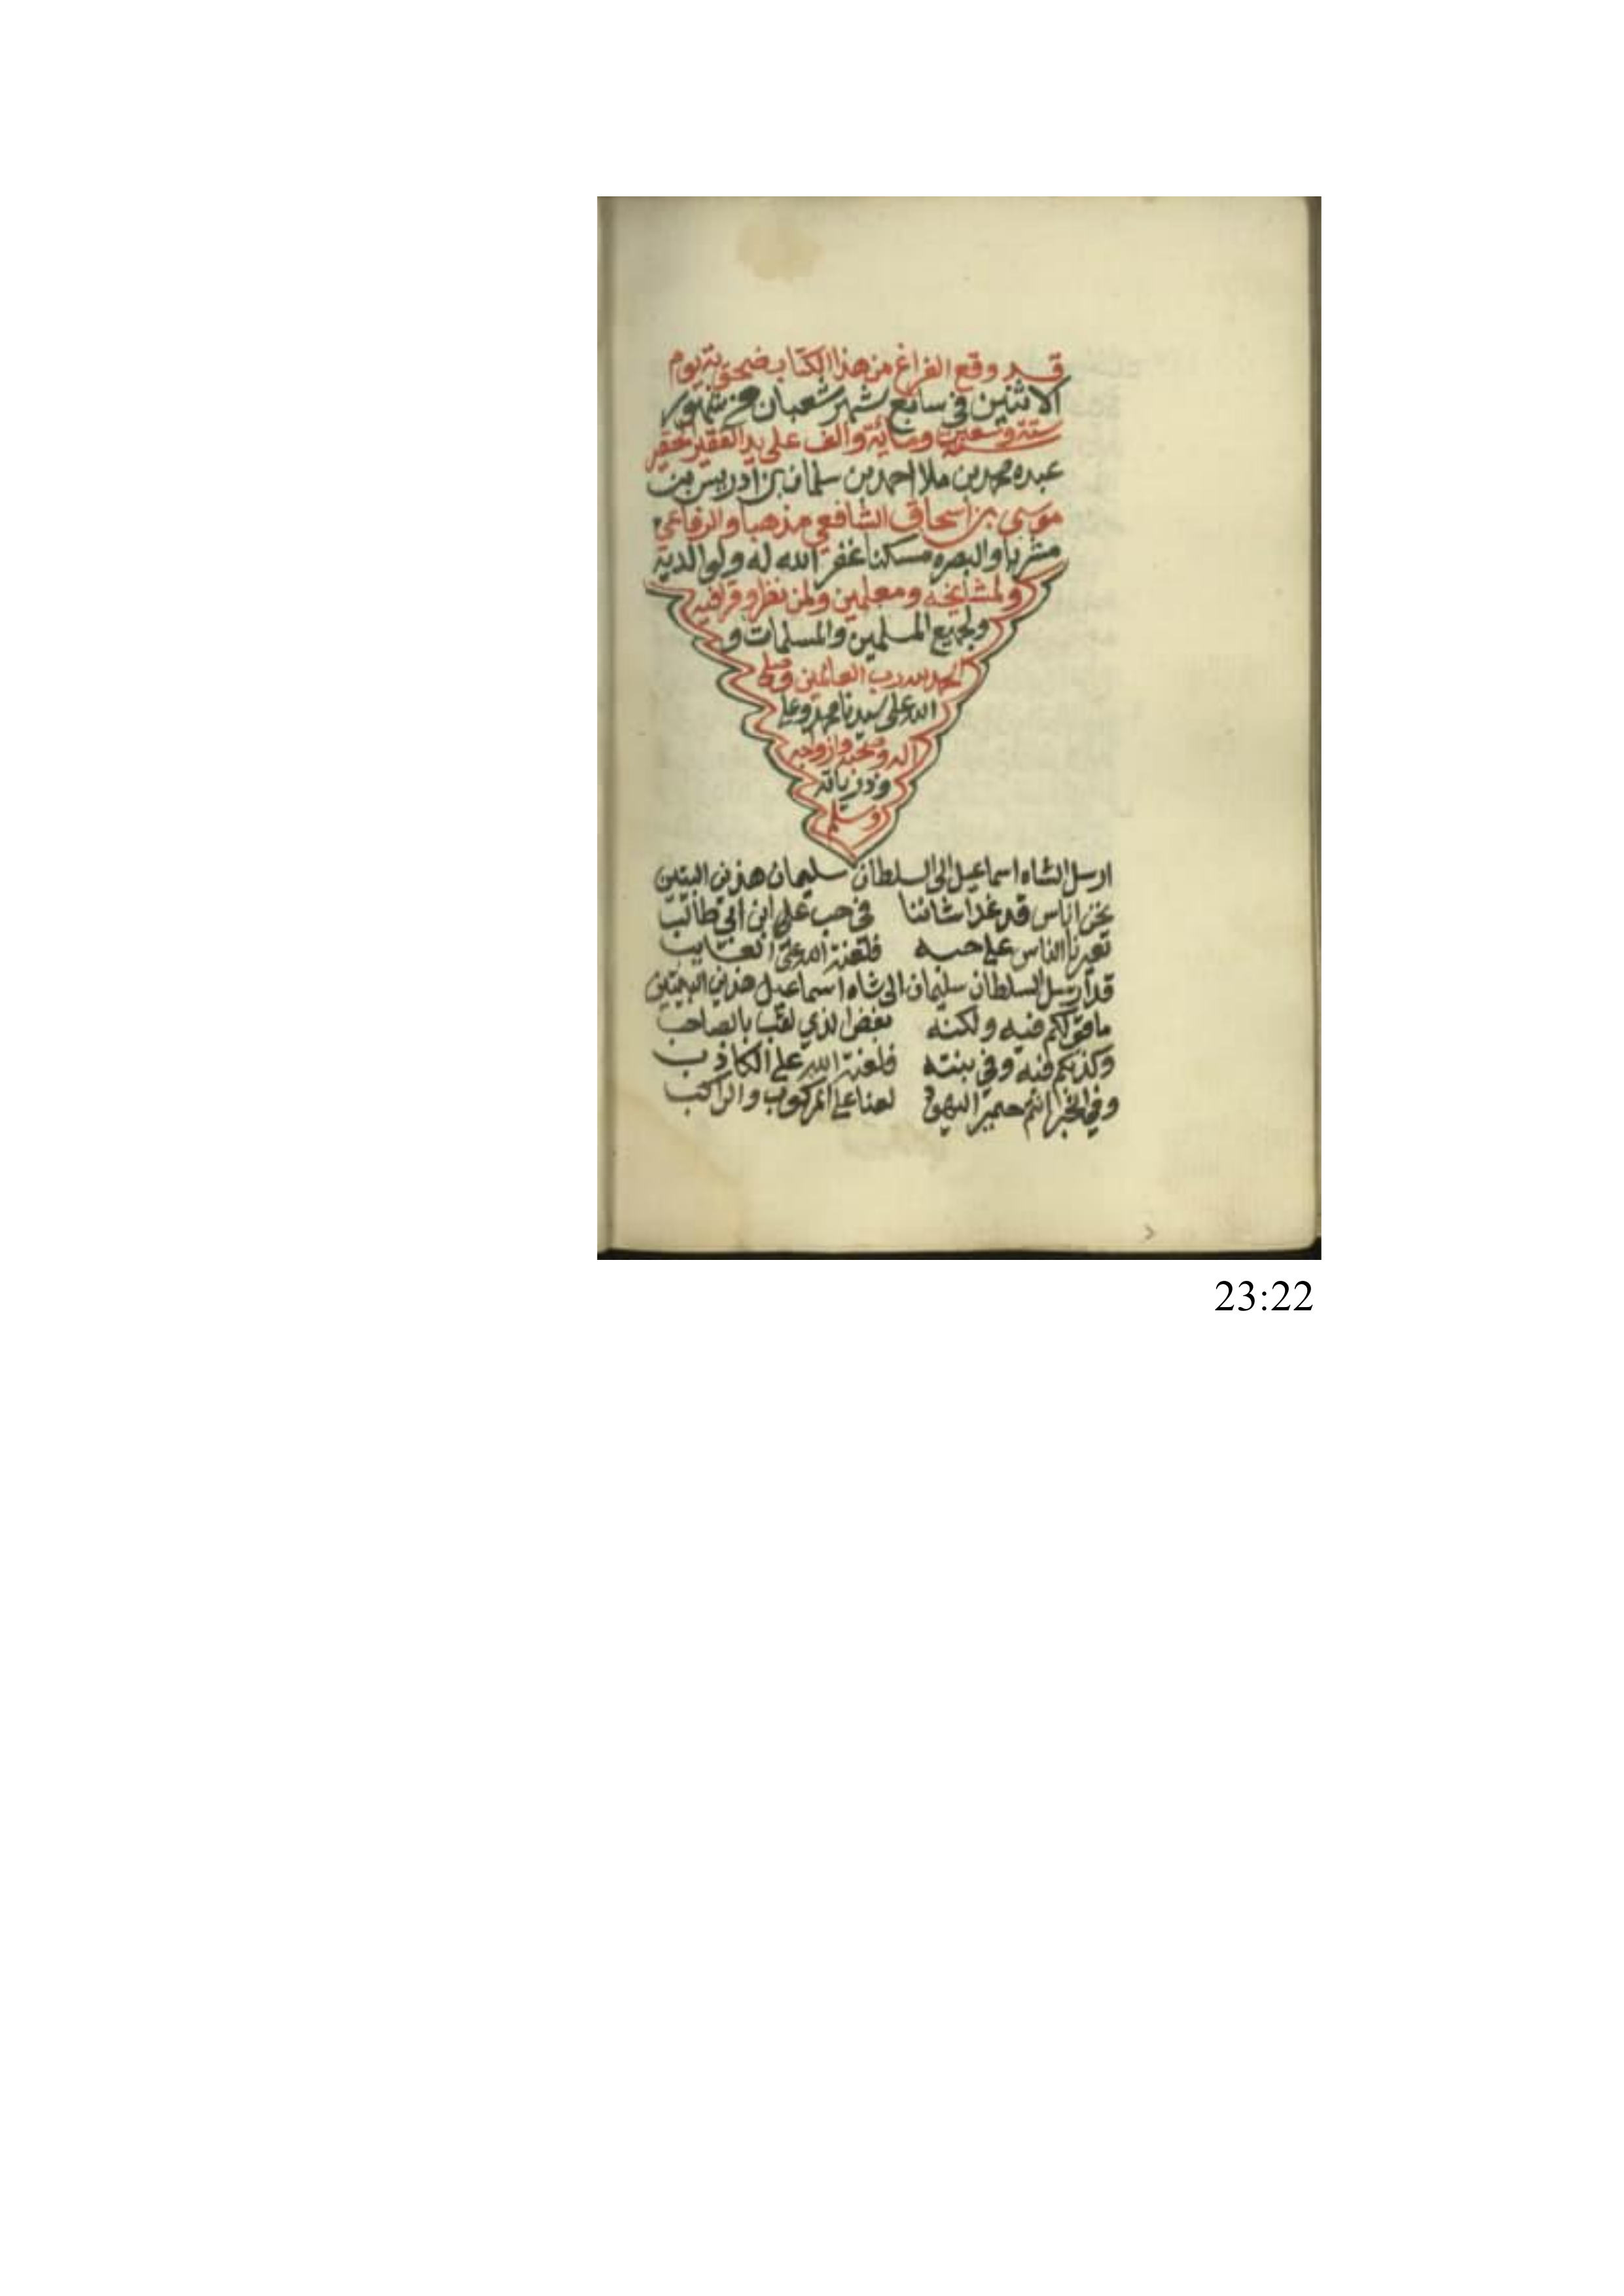 قد وقع الفراغ من هذا الكتاب ضحوة يوم
الاثنين في سابع شهر شعبان من شهور
ستة وسبعين ومائة والف على يد الفقير الحقير
عبده محمد بن ملا احمد بن سلمان بن ادريس بن
موسى بن اسحاق الشافعي مذهبا والرفاعي
مشربا والبصره مسكنا غفر الله له ولوالديه
ولمشايخه ومعلمين ولمن نظر وقرا فيه
ولجميع المسلمين والمسلمات و
الحمد لله رب العالمين وصلى
الله على سيدنا محمد وعلى
اله وصحبه وازواجه
وذرياته
وسلم
ارسل الشاه اسماعيل الى السلطان سليمان هذين البيتين
نحن اناس قد غدا شاننا في حب علي ابن ابي طالب
تعيرنا الناس على حبه فلعنة الله على العايب
قد ارسل السلطان سليمان الى شاه اسماعيل هذين البيتين
ما قولكم فيه ولكنه بغض الذي لقب بالصاحب
وكذبكم فيه وفي بنته فلعنة الله على الكاذب
وفي الخبر انتم حمير اليهود لعنا على المركوب والراكب
23:22